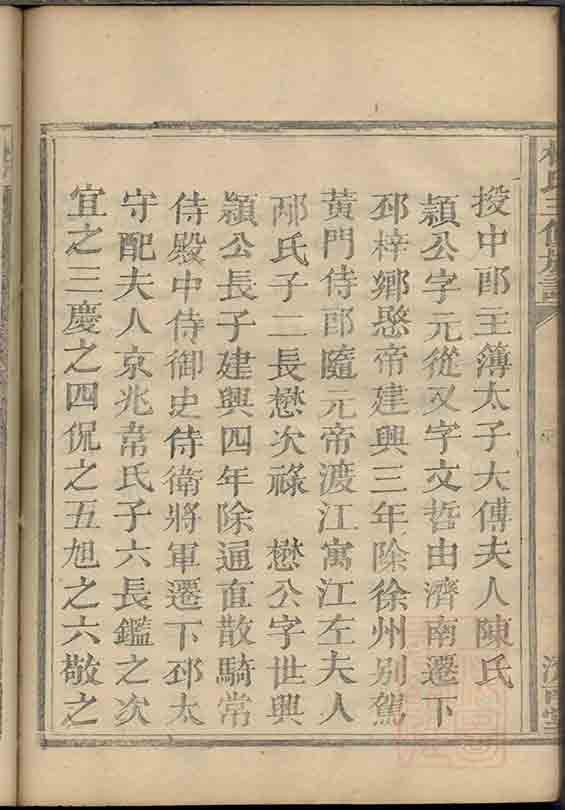 授中郎主簿太子大傅夫人陳氏
穎公字元從又字文哲由濟南遷下
邳梓鄉愍帝建興三年除徐州别駕
黃門侍郎隨元帝渡江寓江左夫人
邴氏子二長懋次祿　懋公字世興
頴公長子建興四年除通直散騎常
侍殿中侍御史侍衛將軍遷下邳太
守配夫人京兆韋氏子六長鑑之次
宜之三慶之四侃之五旭之六敬之